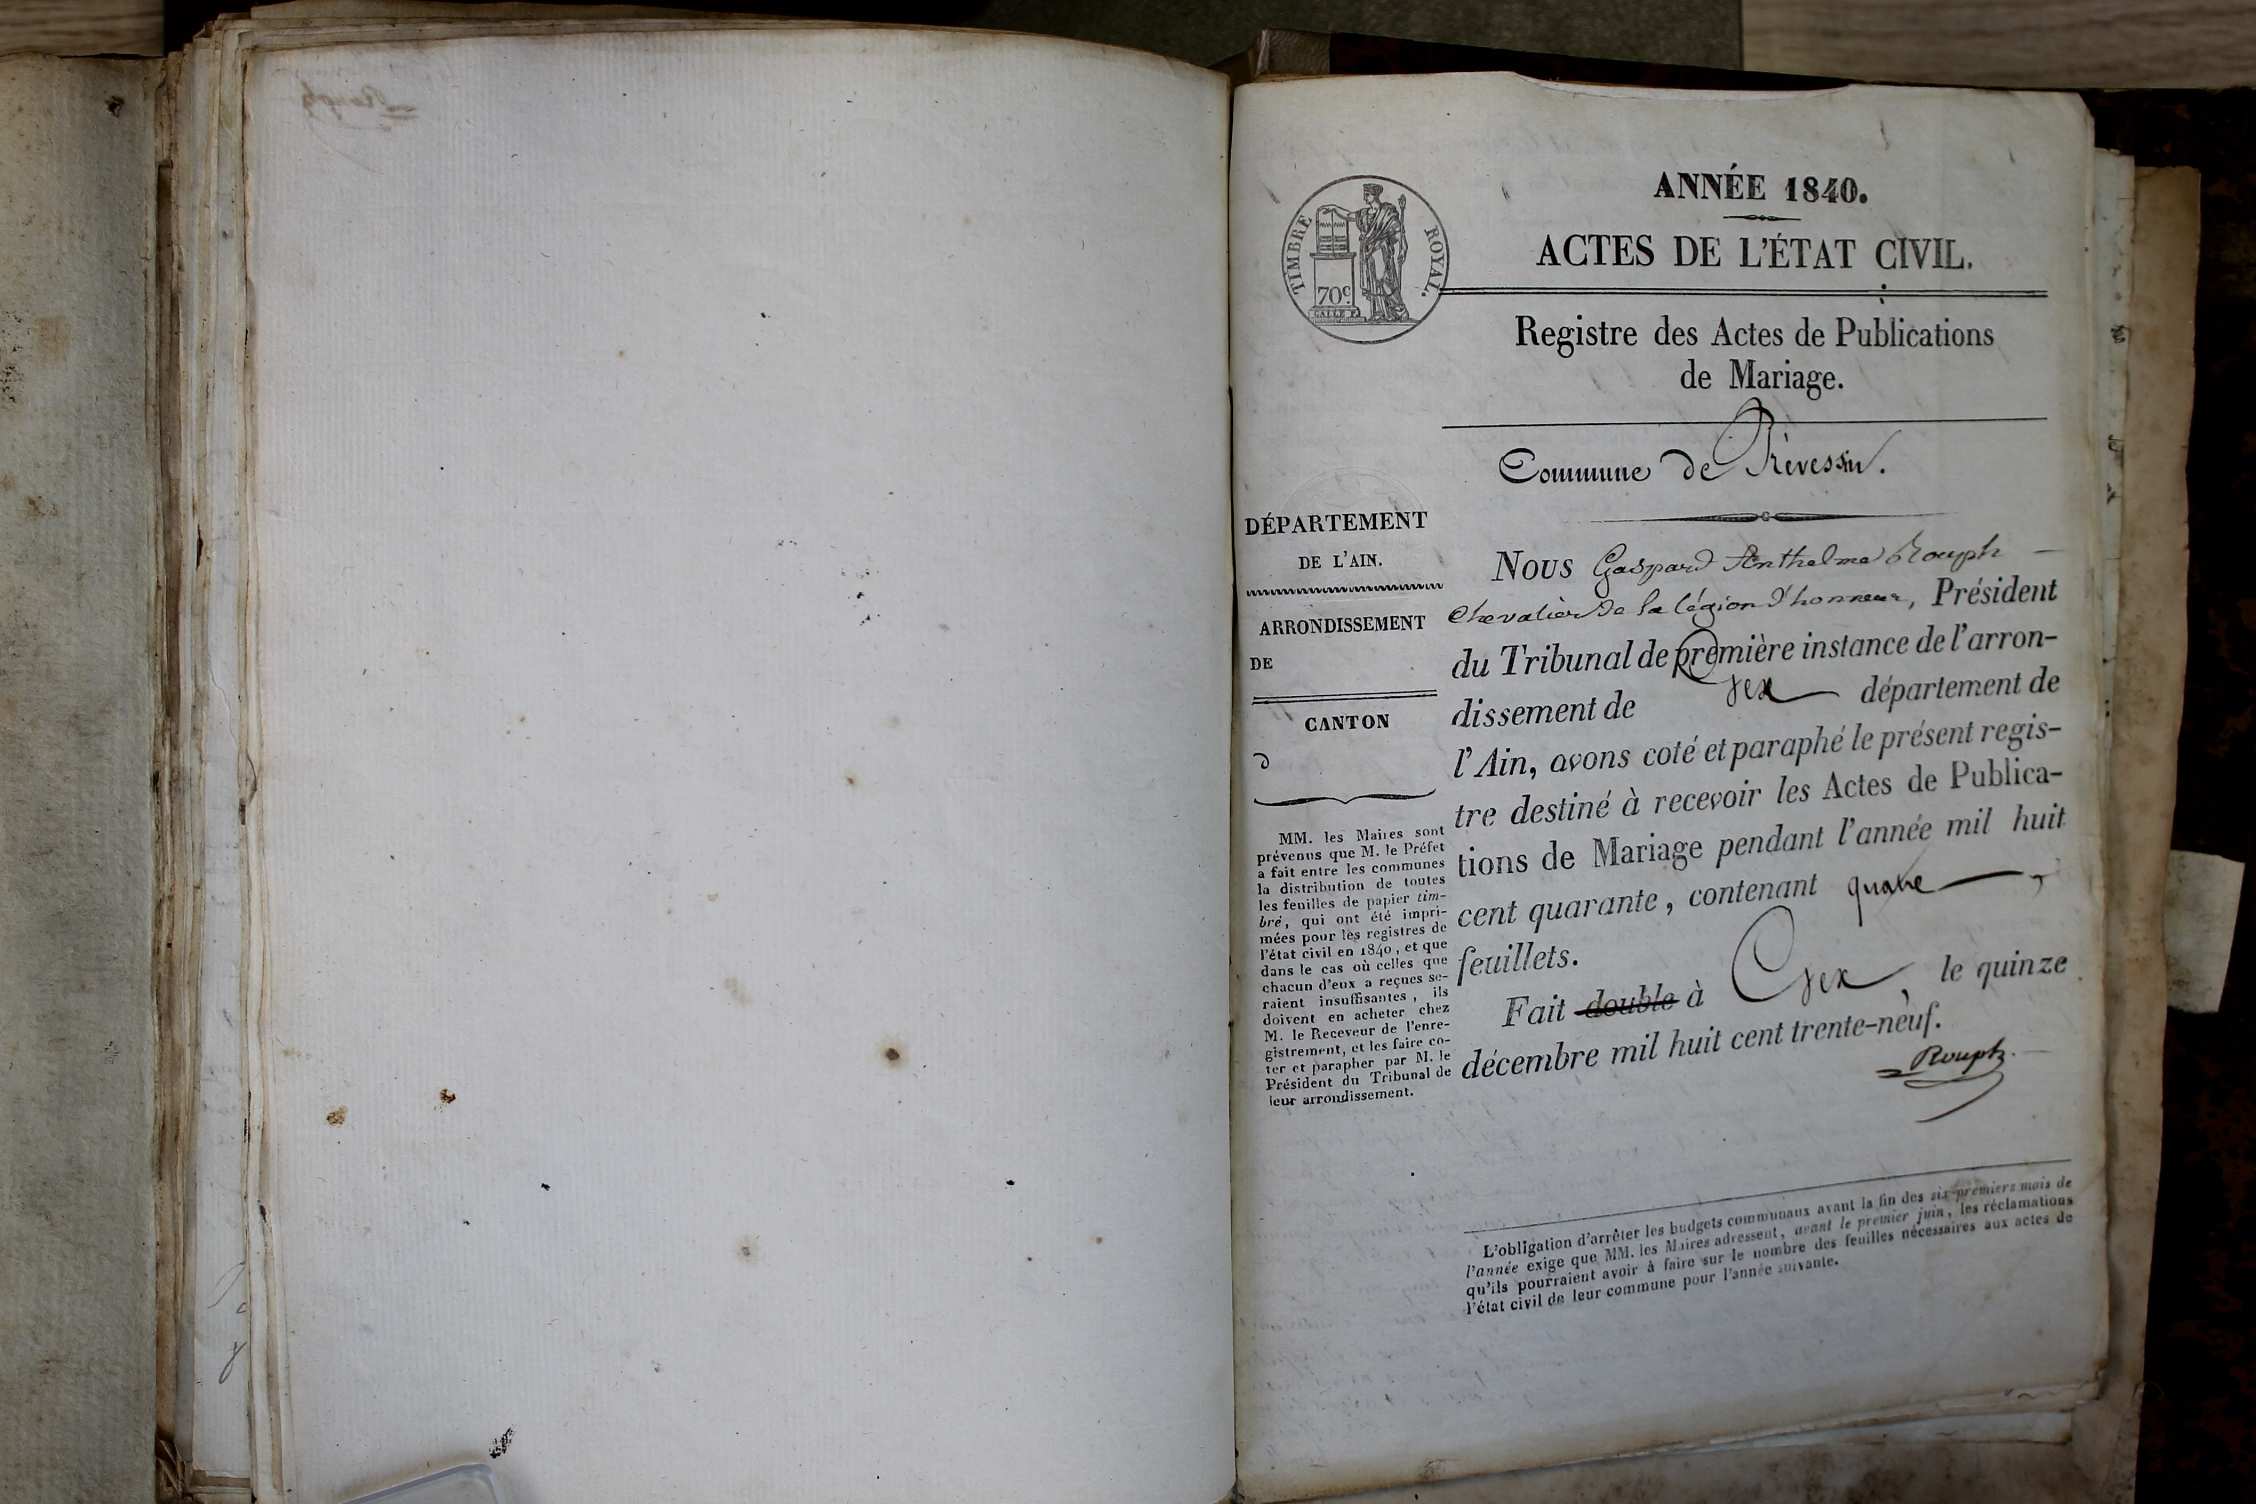 ANNÉE 1840.
ACTES DE L'ÉTAT CIVIL.
TIMBRE ROYAL.
70c
Registre des Actes de Publications
de Mariage.
Commune de Prévessin.
DÉPARTEMENT
DE L'AIN.
ARRONDISSEMENT
DE
CANTON
d
MM. les Maires sont
prévenus que M. le Préfet
a fait entre les communes
la distribution de toutes
les feuilles de papier tim-
bré, qui ont été impri-
mées pour les registres de
l'état civil en 1840, et que
dans le cas où celles que
chacun d'eux a reçues se-
raient insuffisantes, ils
doivent en acheter chez
M. le Receveur de l'enre-
gistrement, et les faire co-
ter et parapher par M. le
Président du Tribunal de
leur arrondissement.
Nous Gaspard Anthelme Rouph
Chevalier de la légion d'honneur, Président
du Tribunal de première instance de l'arron-
dissement de Gex département de
l'Ain, avons coté et paraphé le présent regis-
tre destiné à recevoir les Actes de Publica-
tions de Mariage pendant l'année mil huit
cent quarante, contenant quatre
feuillets.
Fait double à Gex, le quinze
décembre mil huit cent trente-neuf.
Rouph
L'obligation d'arrêter les budgets communaux avant la fin des six premiers mois de
l'année exige que MM. les Maires adressent, avant le premier juin, les réclamations
qu'ils pourraient avoir à faire sur le nombre des feuilles nécessaires aux actes de
l'état civil de leur commune pour l'année suivante.